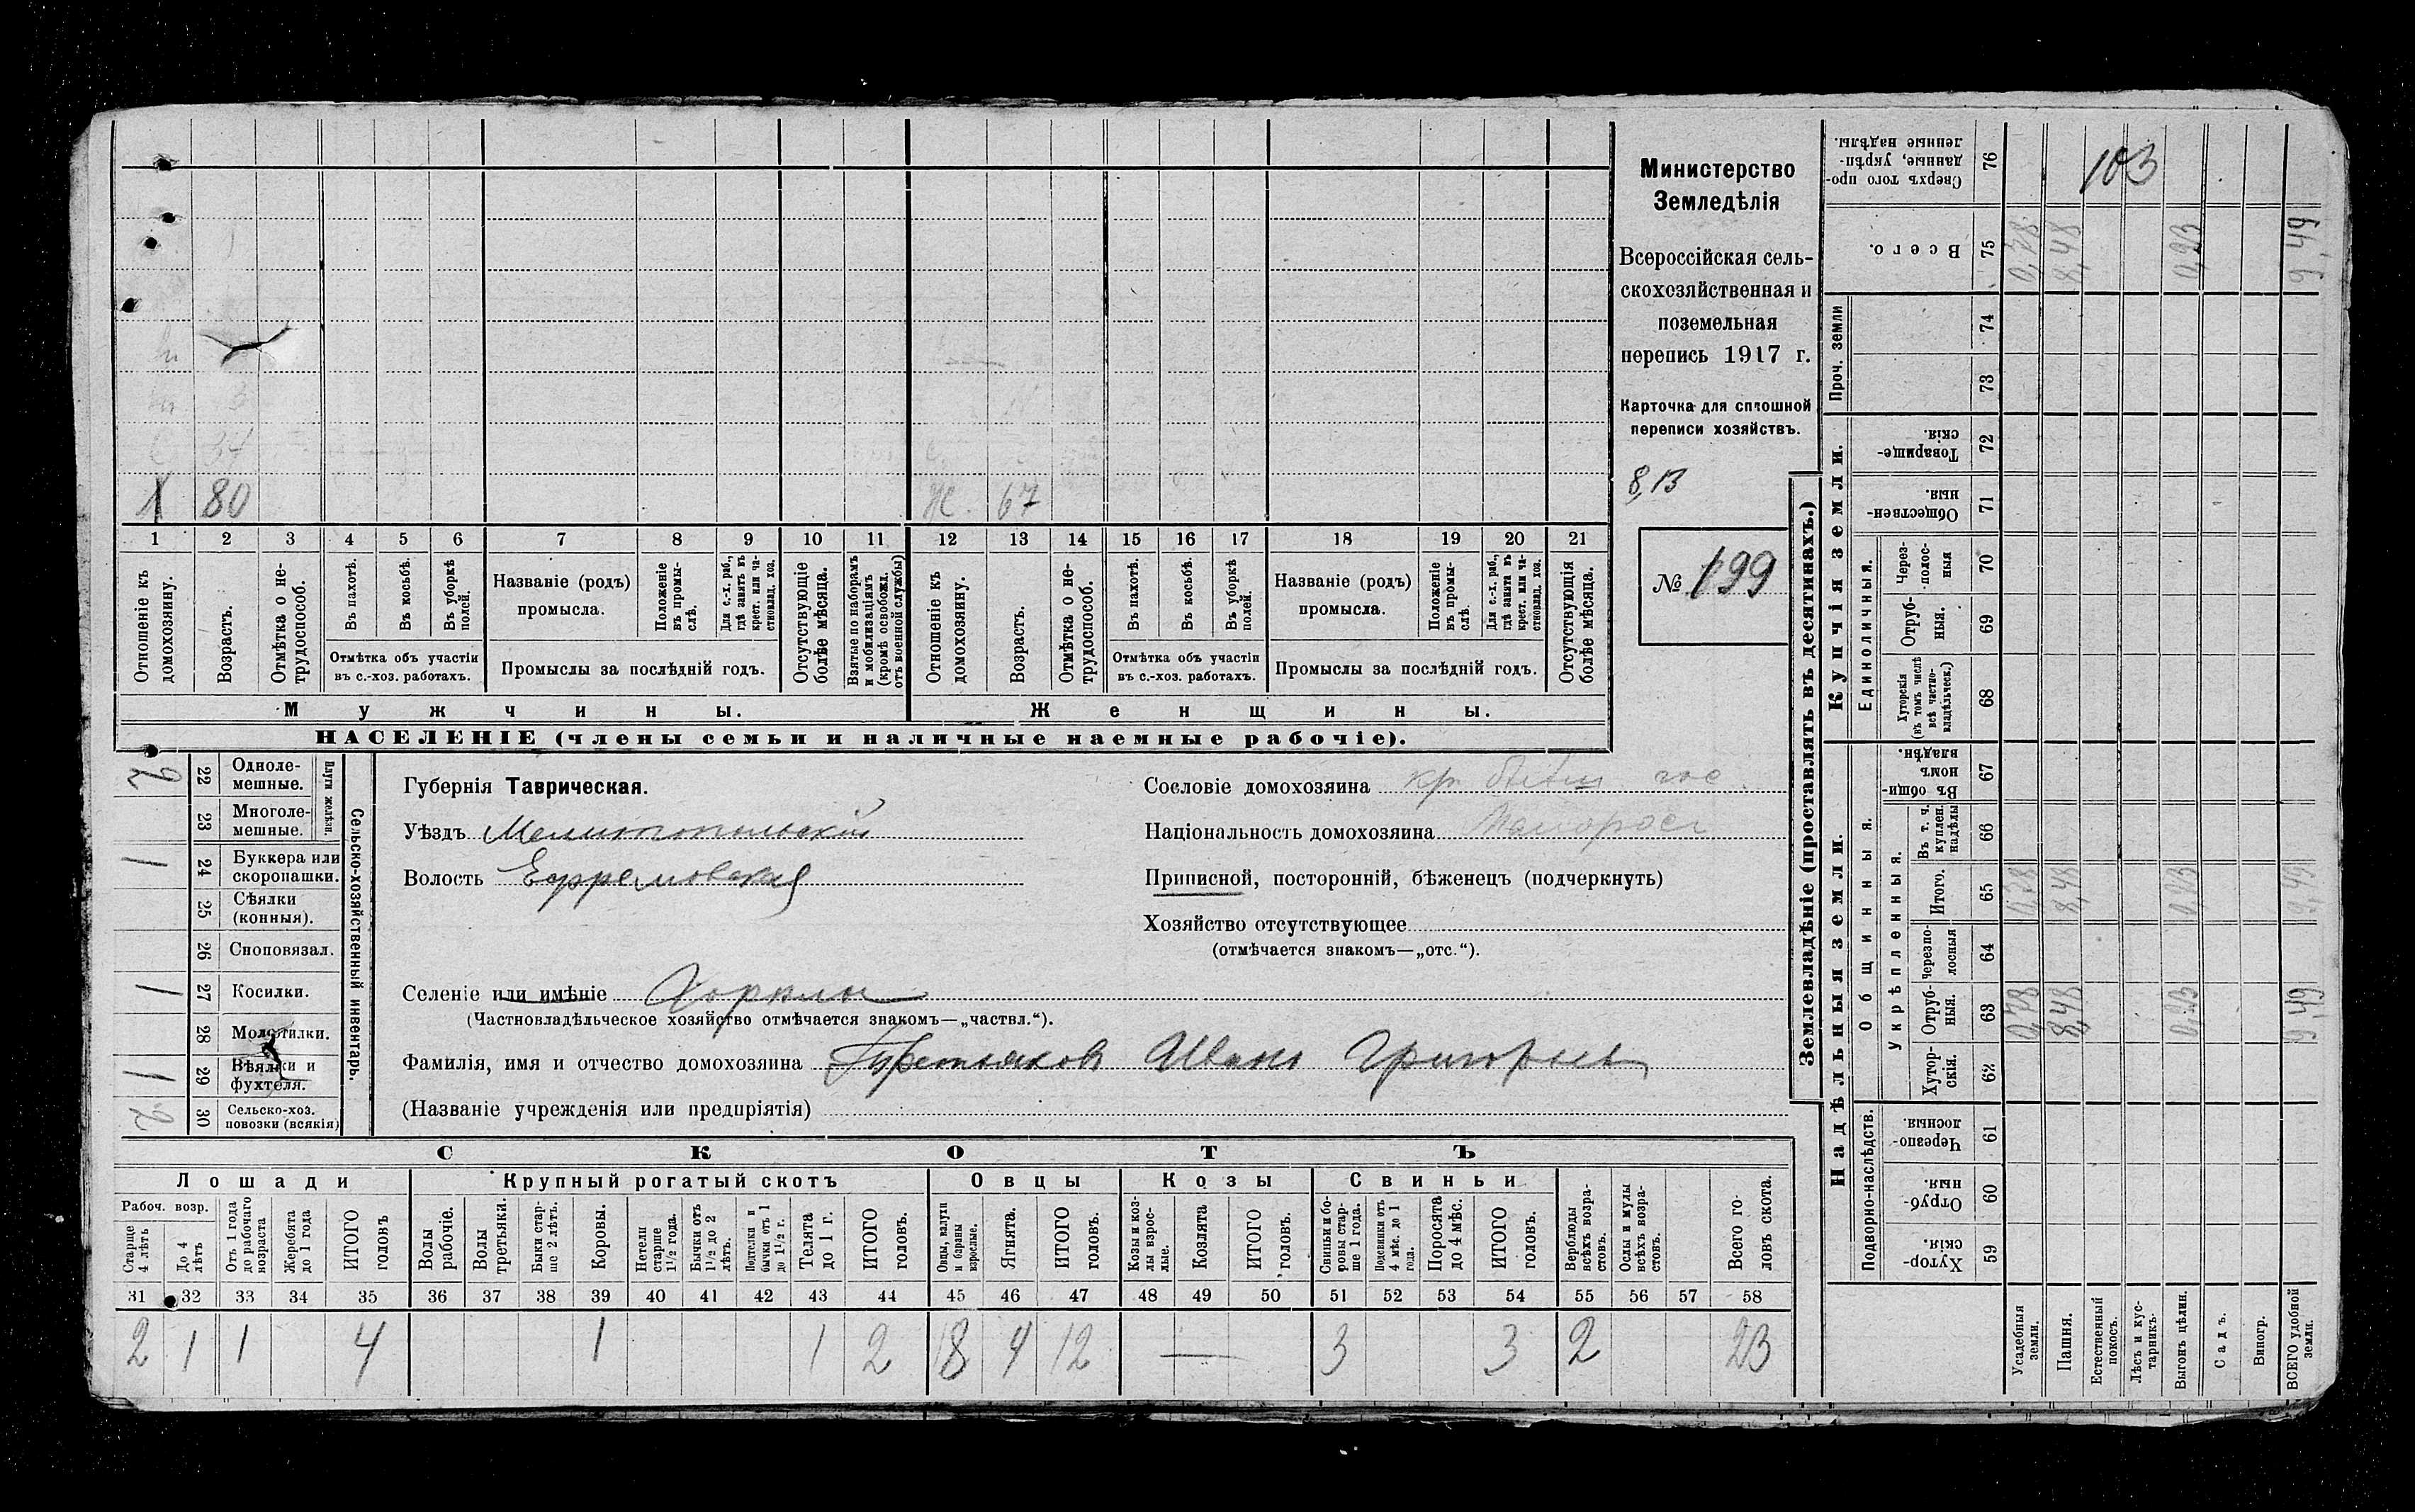 Министерство
Земледѣлія
Всероссійская сель-
скохозяйственная и
поземельная
перепись 1917 г.
Карточка для сплошной
переписи хозяйствъ.
8,13
№ 199
80
Ж. 67
1 2 3 4 5 6 7 8 9 10 11 12 13 14 15 16 17 18 19 20 21
Отношеніе къ домохозяину.
Возрастъ.
Отмѣтка о не-трудоспособ.
Въ пахотѣ.
Въ косьбѣ.
Въ уборкѣ полей.
Отмѣтка объ участіи
въ с.-хоз. работахъ.
Названіе (родъ)
промысла.
Положеніе въ промы-слѣ.
Для с.-х. раб., гдѣ занятъ въ крест. или ча-стновлад. хоз.
Промыслы за послѣдній годъ.
Отсутствующіе болѣе мѣсяца.
Взятые по наборамъ и мобилизаціямъ (кромѣ освобожд. отъ военной службы)
Отношеніе къ домохозяину.
Возрастъ.
Отмѣтка о не-трудоспособ.
Въ пахотѣ.
Въ косьбѣ.
Въ уборкѣ полей.
Отмѣтка объ участіи
въ с.-хоз. работахъ.
Названіе (родъ)
промысла.
Положеніе въ промы-слѣ.
Для с.-х. раб., гдѣ занятъ въ крест. или ча-стновлад. хоз.
Промыслы за послѣдній годъ.
Отсутствующія болѣе мѣсяца.
Мужчины.
Женщины.
НАСЕЛЕНІЕ (члены семьи и наличные наемные рабочіе).
Сельско-хозяйственный инвентарь.
Плуги желѣзн.
2 22 Одноле-мешные.
23 Многоле-мешные.
1 24 Буккера или скоропашки.
25 Сѣялки (конныя).
26 Сноповязал.
1 27 Косилки.
28 Молотилки.
1 29 Вѣялки и фухтеля.
2 30 Сельско-хоз. повозки (всякія)
Губернія Таврическая.
Уѣздъ Мелитопольскій
Волость Ефремовская
Селеніе или имѣніе Горѣлы
(Частновладѣльческое хозяйство отмѣчается знакомъ—„частвл.“).
Фамилія, имя и отчество домохозяина Третьяков Иван Григорьев
(Названіе учрежденія или предпріятія)
Сословіе домохозяина кр.
Національность домохозяина Малоросс
Приписной, посторонній, бѣженецъ (подчеркнуть)
Хозяйство отсутствующее
(отмѣчается знакомъ—„отс.“).
СКОТЪ
Лошади Крупный рогатый скотъ Овцы Козы Свиньи
Рабоч. возр.
Старше 4 лѣтъ
До 4 лѣтъ
Отъ 1 года до рабочаго возраста
Жеребята до 1 года
ИТОГО головъ
Волы рабочіе.
Волы третьяки.
Быки стар-ше 2 лѣтъ.
Коровы.
Нетели старше 1½ года.
Бычки отъ 1½ до 2 лѣтъ.
Подтелки и бычки отъ 1 до 1½ г.
Телята до 1 г.
ИТОГО головъ.
Овцы, валухи и бараны взрослые.
Ягнята.
ИТОГО головъ.
Козы и коз-лы взрос-лые.
Козлята
ИТОГО головъ.
Свиньи и бо-ровы стар-ше 1 года.
Подсвинки отъ 4 мѣс. до 1 года.
Поросята до 4 мѣс.
ИТОГО головъ.
Верблюды всѣхъ возра-стовъ.
Ослы и мулы всѣхъ возра-стовъ.
Всего го-ловъ скота.
31 32 33 34 35 36 37 38 39 40 41 42 43 44 45 46 47 48 49 50 51 52 53 54 55 56 57 58
2 1 1 4 1 1 2 8 4 12 — 3 3 2 23
Землевладѣніе (проставлять въ десятинахъ.)
Надѣльныя земли.
Купчія земли.
Проч. земли
Подворно-наслѣдств.
Общинныя.
Укрѣпленныя.
Единоличныя.
Сверхъ того про-данные, укрѣп-ленные надѣлы. 76
103
Всего. 75 8,48 0,23 9,49
74
73
Товарище-скія. 72
Обществен-ныя. 71
Через-полос-ныя 70
Отруб-ныя. 69
Хуторскія (въ томъ числѣ всѣ частно-владѣльческ.) 68
Въ общи-номъ владѣн. 67
Въ т. ч. куплен. надѣлы 66
Итого. 65 8,48 0,23 9,49
Черезпо-лосныя 64
Отруб-ныя. 63 0,78 8,48 0,23 9,49
Хутор-скія. 62
Черезпо-лосныя. 61
Отруб-ныя. 60
Хутор-скія. 59
Усадебныя земли.
Пашня.
Естественный покосъ.
Лѣсъ и кус-тарникъ.
Выгонъ цѣлин.
Садъ.
Виногр.
ВСЕГО удобной земли.